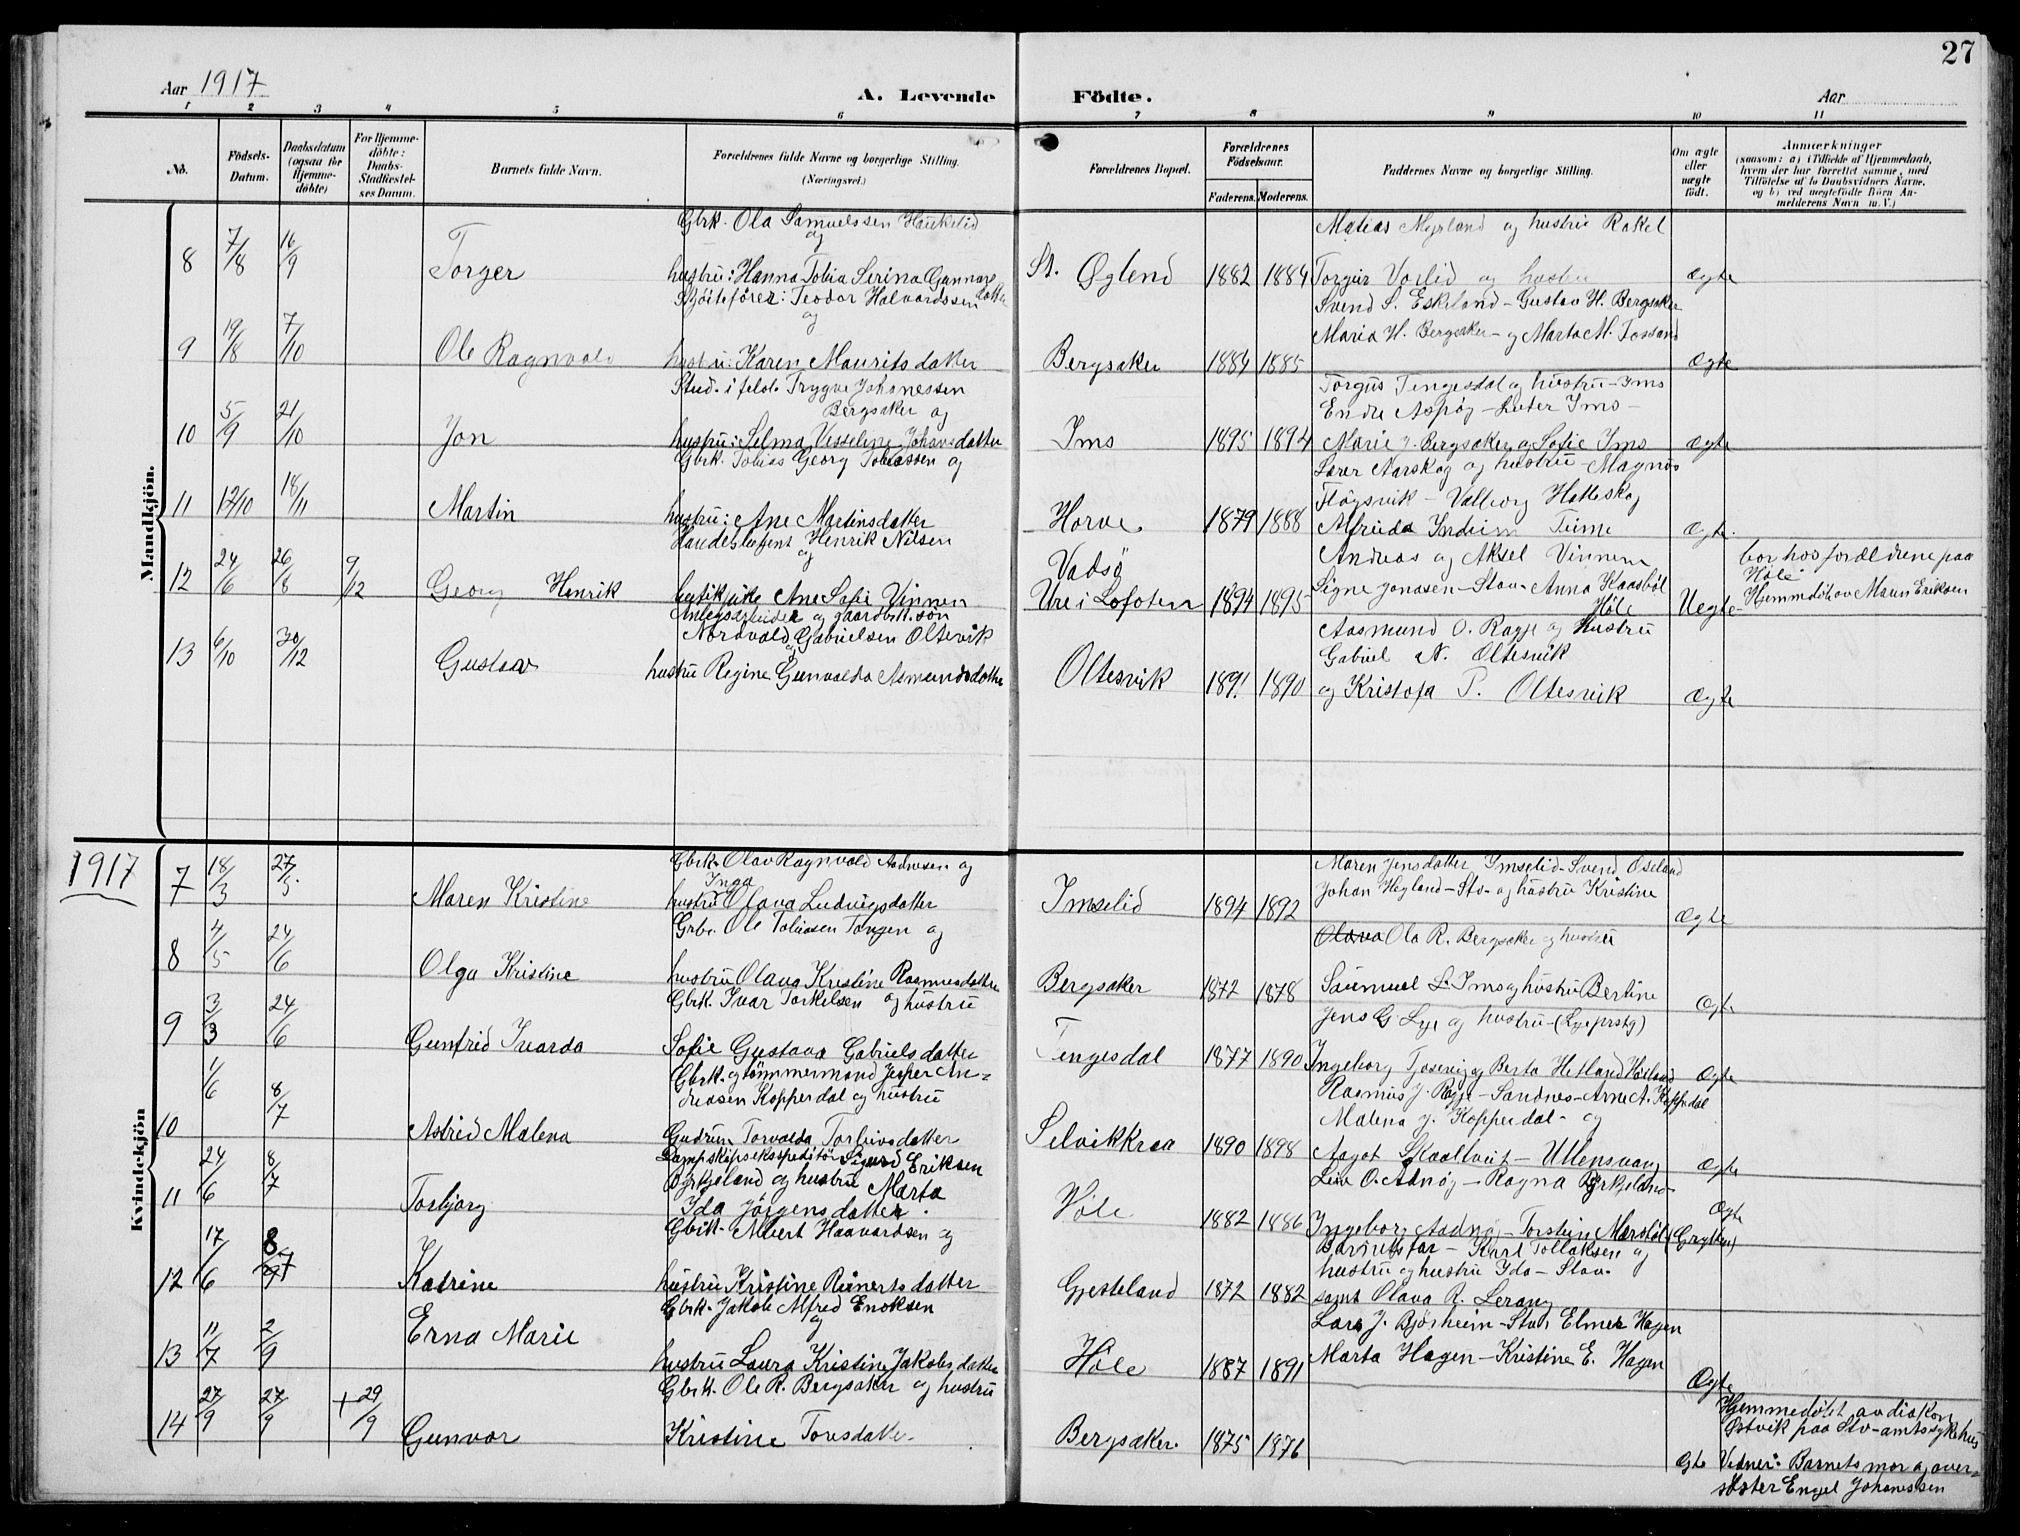 27
Aar 1917
A. Levende Födte.
Aar
1 2 3 4 5 6 7 8 9 10 11
No.
Födsels-Datum.
Daabsdatum (ogsaa for Hjemme-döbte)
For Hjemme-döbte: Daabs-Stadfæstel-ses Datum.
Barnets fulde Navn.
Forældrenes fulde Navne og borgerlige Stilling. (Næringsvei.)
Forældrenes Bopæl.
Forældrenes Födselsaar.
Faderens. Moderens.
Faddernes Navne og borgerlige Stilling.
Om ægte eller uægte födt.
Anmærkninger
(saasom: a) i Tilfælde af Hjemmedaab, hvem der har forrettet samme, med Tilföielse af to Daabsvidners Navne, og b) ved uægtefödte Börn An-melderens Navn m. V.)
Mandkjön.
8 7/8 16/9 Torger
Gbrk. Ola Samuelssen Haukelid
og
hustru: Hanna Tobia Serina Gunnars datter
St. Øglend 1882 1884
Matias Myrland og hustru Rakel
Torger Vorlid og hustru
Ægte
9 19/8 7/10 Ole Ragnvald
Skjöitefører: Teodor Halvardssen
og
hustru: Karen Maurits datter
Bergsaker 1884 1885
Svend S. Eskeland - Gustav H. Bergsaker
Maria H. Bergsaker - og Marta M. Fossand
Ægte
10 5/9 21/10 Jon
Stud. i filolo Trygve Johanessen
Bergsaker og
hustru: Selma Vesseline Johansdatter
Ims 1895 1894
Torgus Tengesdal og hustru - Ims
Endre Aspøy - Luter Ims -
Marie J. Bergsaker og Sofie Ims
Ægte
11 12/10 18/11 Martin
Gbrk. Tobias Georg Tobiassen og
hustru: Ane Martinsdatter
Horve 1879 1888
Lærer Aarskog og hustru - Magnus
Fløgsvik - Valborg Hatleskog
Alfrida Indrim Time
Ægte.
12 24/6 26/8 9/12 Georg Henrik
Handelsagent Henrik Nilsen
og
butikpike Ane Sofie Vinnem
Vadsø
Ure i Lofoten 1894 1895
Andreas og Aksel Vinnem
Signe Jonassen - Stav. Anna Kaasbøl
Høle
Uegte
bor hos forældrene paa
Høle
Hjemmedøbt av Maun Eriksen
13 6/10 30/12 Gustav
Anlegsarbeider og gaardbr. søn
Nordvald Gabrielsen Oltesvik
og
hustru Regine Gunvalda Asmundsdatter
Oltesvik 1891 1890
Aasmund O. Ragje og hustru
Gabriel N. Oltesvik
og Kristofa P. Oltesvik
Ægte
1917
Kvindekjön
7 18/3 27/5 Maren Kristine
Gbrk. Olav Ragnvald Aadnesen og
Inga
hustru Olava Ludvigsdatter
Imselid 1894 1892
Maren Jensdatter Imselid - Svend Oseland
Johan Høyland - Stv - og hustru Kristine
Ægte
8 4/5 24/6 Olga Kristine
Grbr. Ole Tobiasen Tongen og
hustru Olava Kristine Rasmusdatter
Bergsaker 1872 1878
Olava Ola R. Bergsaker og hustru
Samuel L. Ims og hustru Bertine
Ægte
9 3/3 24/6 Gunfrid Ivarda
Gbrk. Ivar Torkelsen og hustru
Sofie Gustava Gabrielsdatter
Tengesdal 1877 1890
Jens G. Lye og hustru - (Lye prstg)
Ingeborg Tjosevig og Berta Hetland Høiland
Ægte
10 1/6 8/7 Astrid Malena
Gbrk. og tømmermand Jesper An=
dreasen Kopperdal og hustru
Gudrun Torvalda Torbjørnsdatter
Selvikkraa 1890 1898
Rasmus J. Ragje - Sandnes - Arne A. Koppedal
Malena J. Kopperdal - og
Aagot Skaaltveit - Ullensvang
Ægte
11 24/6 8/7 Torbjørg
Dampskipsekspeditør Sigurd Eriksen
Byrkjeland og hustru Marta
Ida Jørgensdatter.
Høle 1882 1886
Liv O. Adnøy - Ragna Byrkjeland
Ingeborg Aadnøy - Torstein Marstøl (Grytten)
Ægte
12 17/6 8/7 Katrine
Gbrk. Albert Haavardsen og
hustru Kristine Reinerts datter
Gjesteland 1872 1882
Barnets far - Karl Tollaksen og
hustru og hustru Ida - Stav.
samt Olava R. Lerang
13 11/7 2/9 Erna Marie
Gbrk. Jakob Alfred Enoksen
og
hustru Laura Kristine Jakobs datter
Høle 1887 1891
Lars J. Bjørheim - Stav Elmer Hagen
Marta Hagen - Kristine E. Hagen
Ægte
14 27/9 27/9 + 29/9 Gunvor
Gbrk. Ole R. Bergsaker og hustru
Kristine Toresdatter
Bergsaker 1875 1876
Ægte
Hjemmedøbt av diakon
Østvik paa Stv - amtssykehus
Vidner: Barnets mor og over=
søster Engel Johanessen